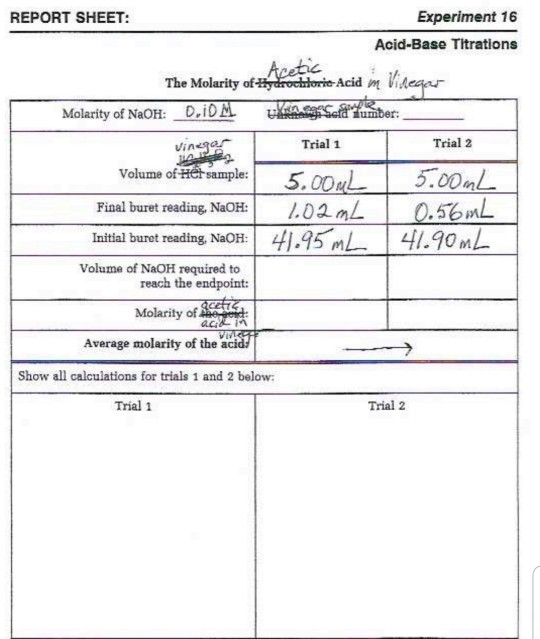 REPORT SHEET: Experiment 16
Acid-Base Titrations
Acetic
The Molarity of Hydrochloric Acid in Vinegar
Molarity of NaOH: 0.10 M Vinegar sample
Unknown acid number:
Trial 1 Trial 2
vinegar
Volume of HCl sample: 5.00 mL 5.00 mL
Final buret reading, NaOH: 1.02 mL 0.56 mL
Initial buret reading, NaOH: 41.95 mL 41.90 mL
Volume of NaOH required to
reach the endpoint:
acetic
Molarity of the acid:
acid in
vinegar
Average molarity of the acid:
Show all calculations for trials 1 and 2 below:
Trial 1 Trial 2